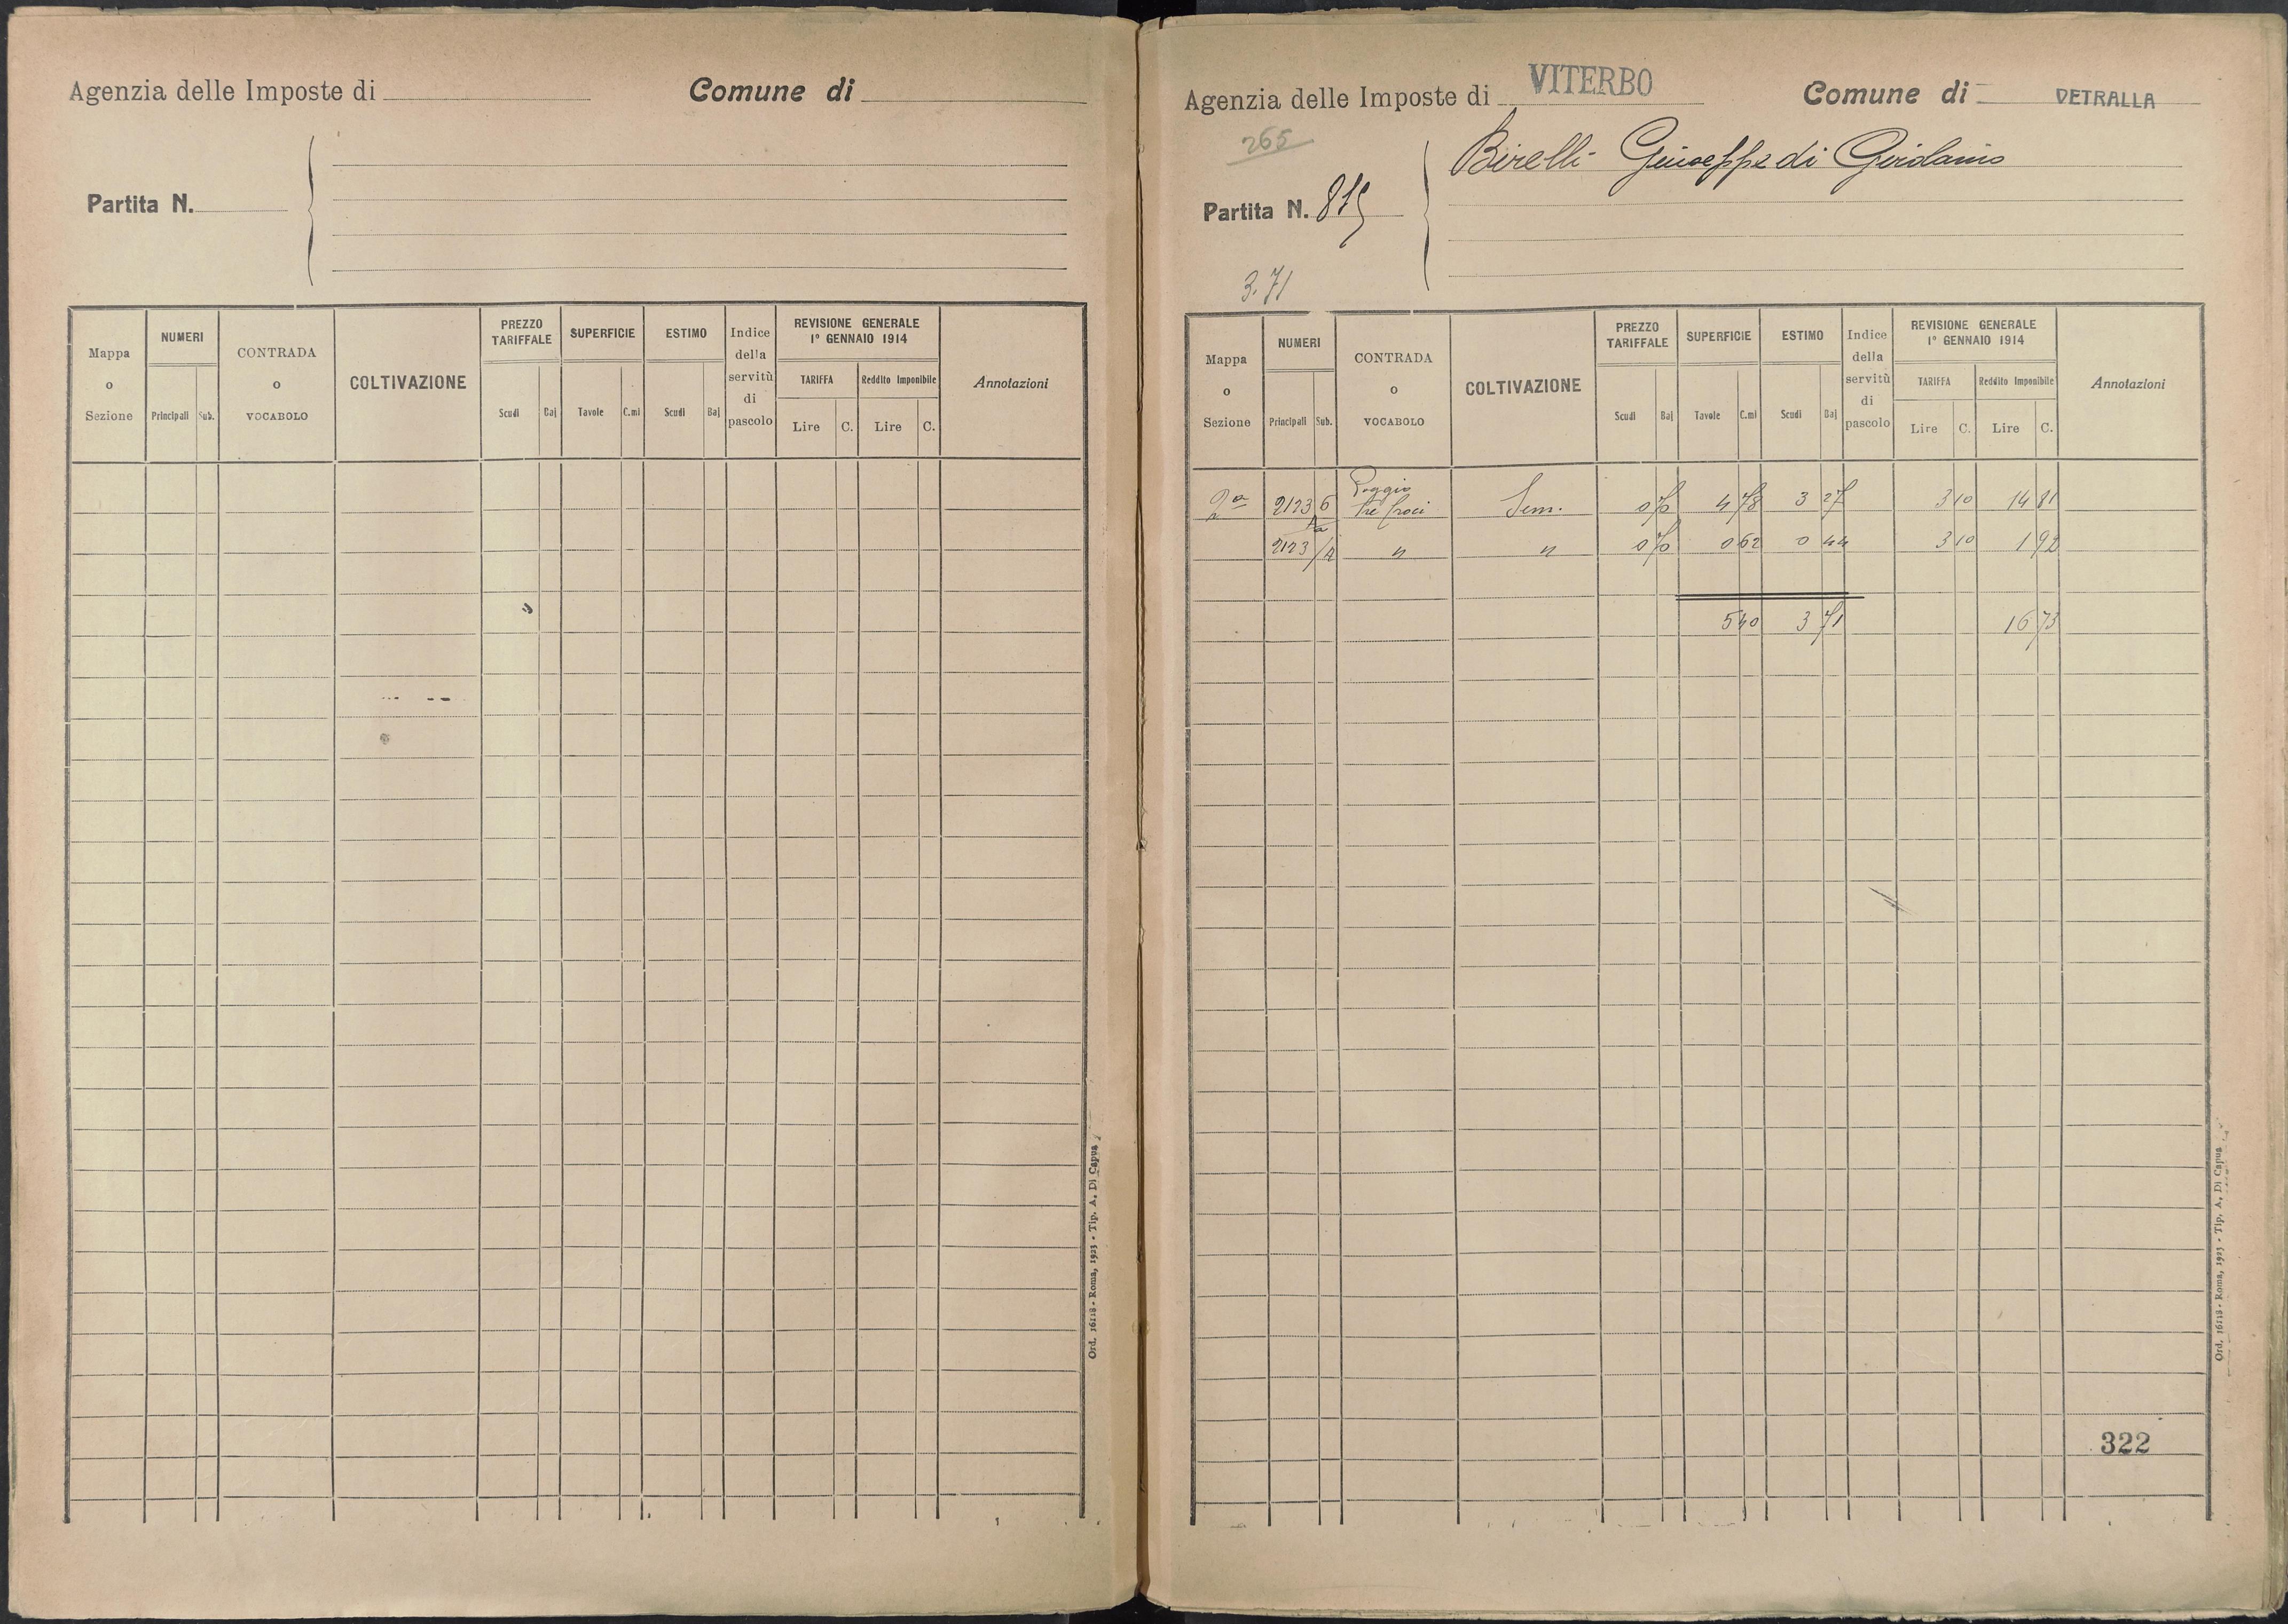 Agenzia delle Imposte di
Comune di
Partita N.
Mappa o Sezione
NUMERI
Principali Sub.
CONTRADA o VOCABOLO
COLTIVAZIONE
PREZZO TARIFFALE
Scudi Baj
SUPERFICIE
Tavole C.mi
ESTIMO
Scudi Baj
Indice della servitù di pascolo
REVISIONE GENERALE
1° GENNAIO 1914
TARIFFA Reddito Imponibile
Lire C. Lire C.
Annotazioni
Ord. 16118 - Roma, 1923 - Tip. A. Di Capua
Agenzia delle Imposte di VITERBO
Comune di VETRALLA
265
Birelli Giuseppe di Girolamo
Partita N. 815
3.71
Mappa o Sezione
NUMERI
Principali Sub.
CONTRADA o VOCABOLO
COLTIVAZIONE
PREZZO TARIFFALE
Scudi Baj
SUPERFICIE
Tavole C.mi
ESTIMO
Scudi Baj
Indice della servitù di pascolo
REVISIONE GENERALE
1° GENNAIO 1914
TARIFFA Reddito Imponibile
Lire C. Lire C.
Annotazioni
2a 2123 6 Poggio Sem. 0 70 4 78 3 27 3 10 14 81
2123 " " 0 70 0 62 0 44 3 10 1 92
5 40 3 71 16 73
322
Ord. 16118 - Roma, 1923 - Tip. A. Di Capua